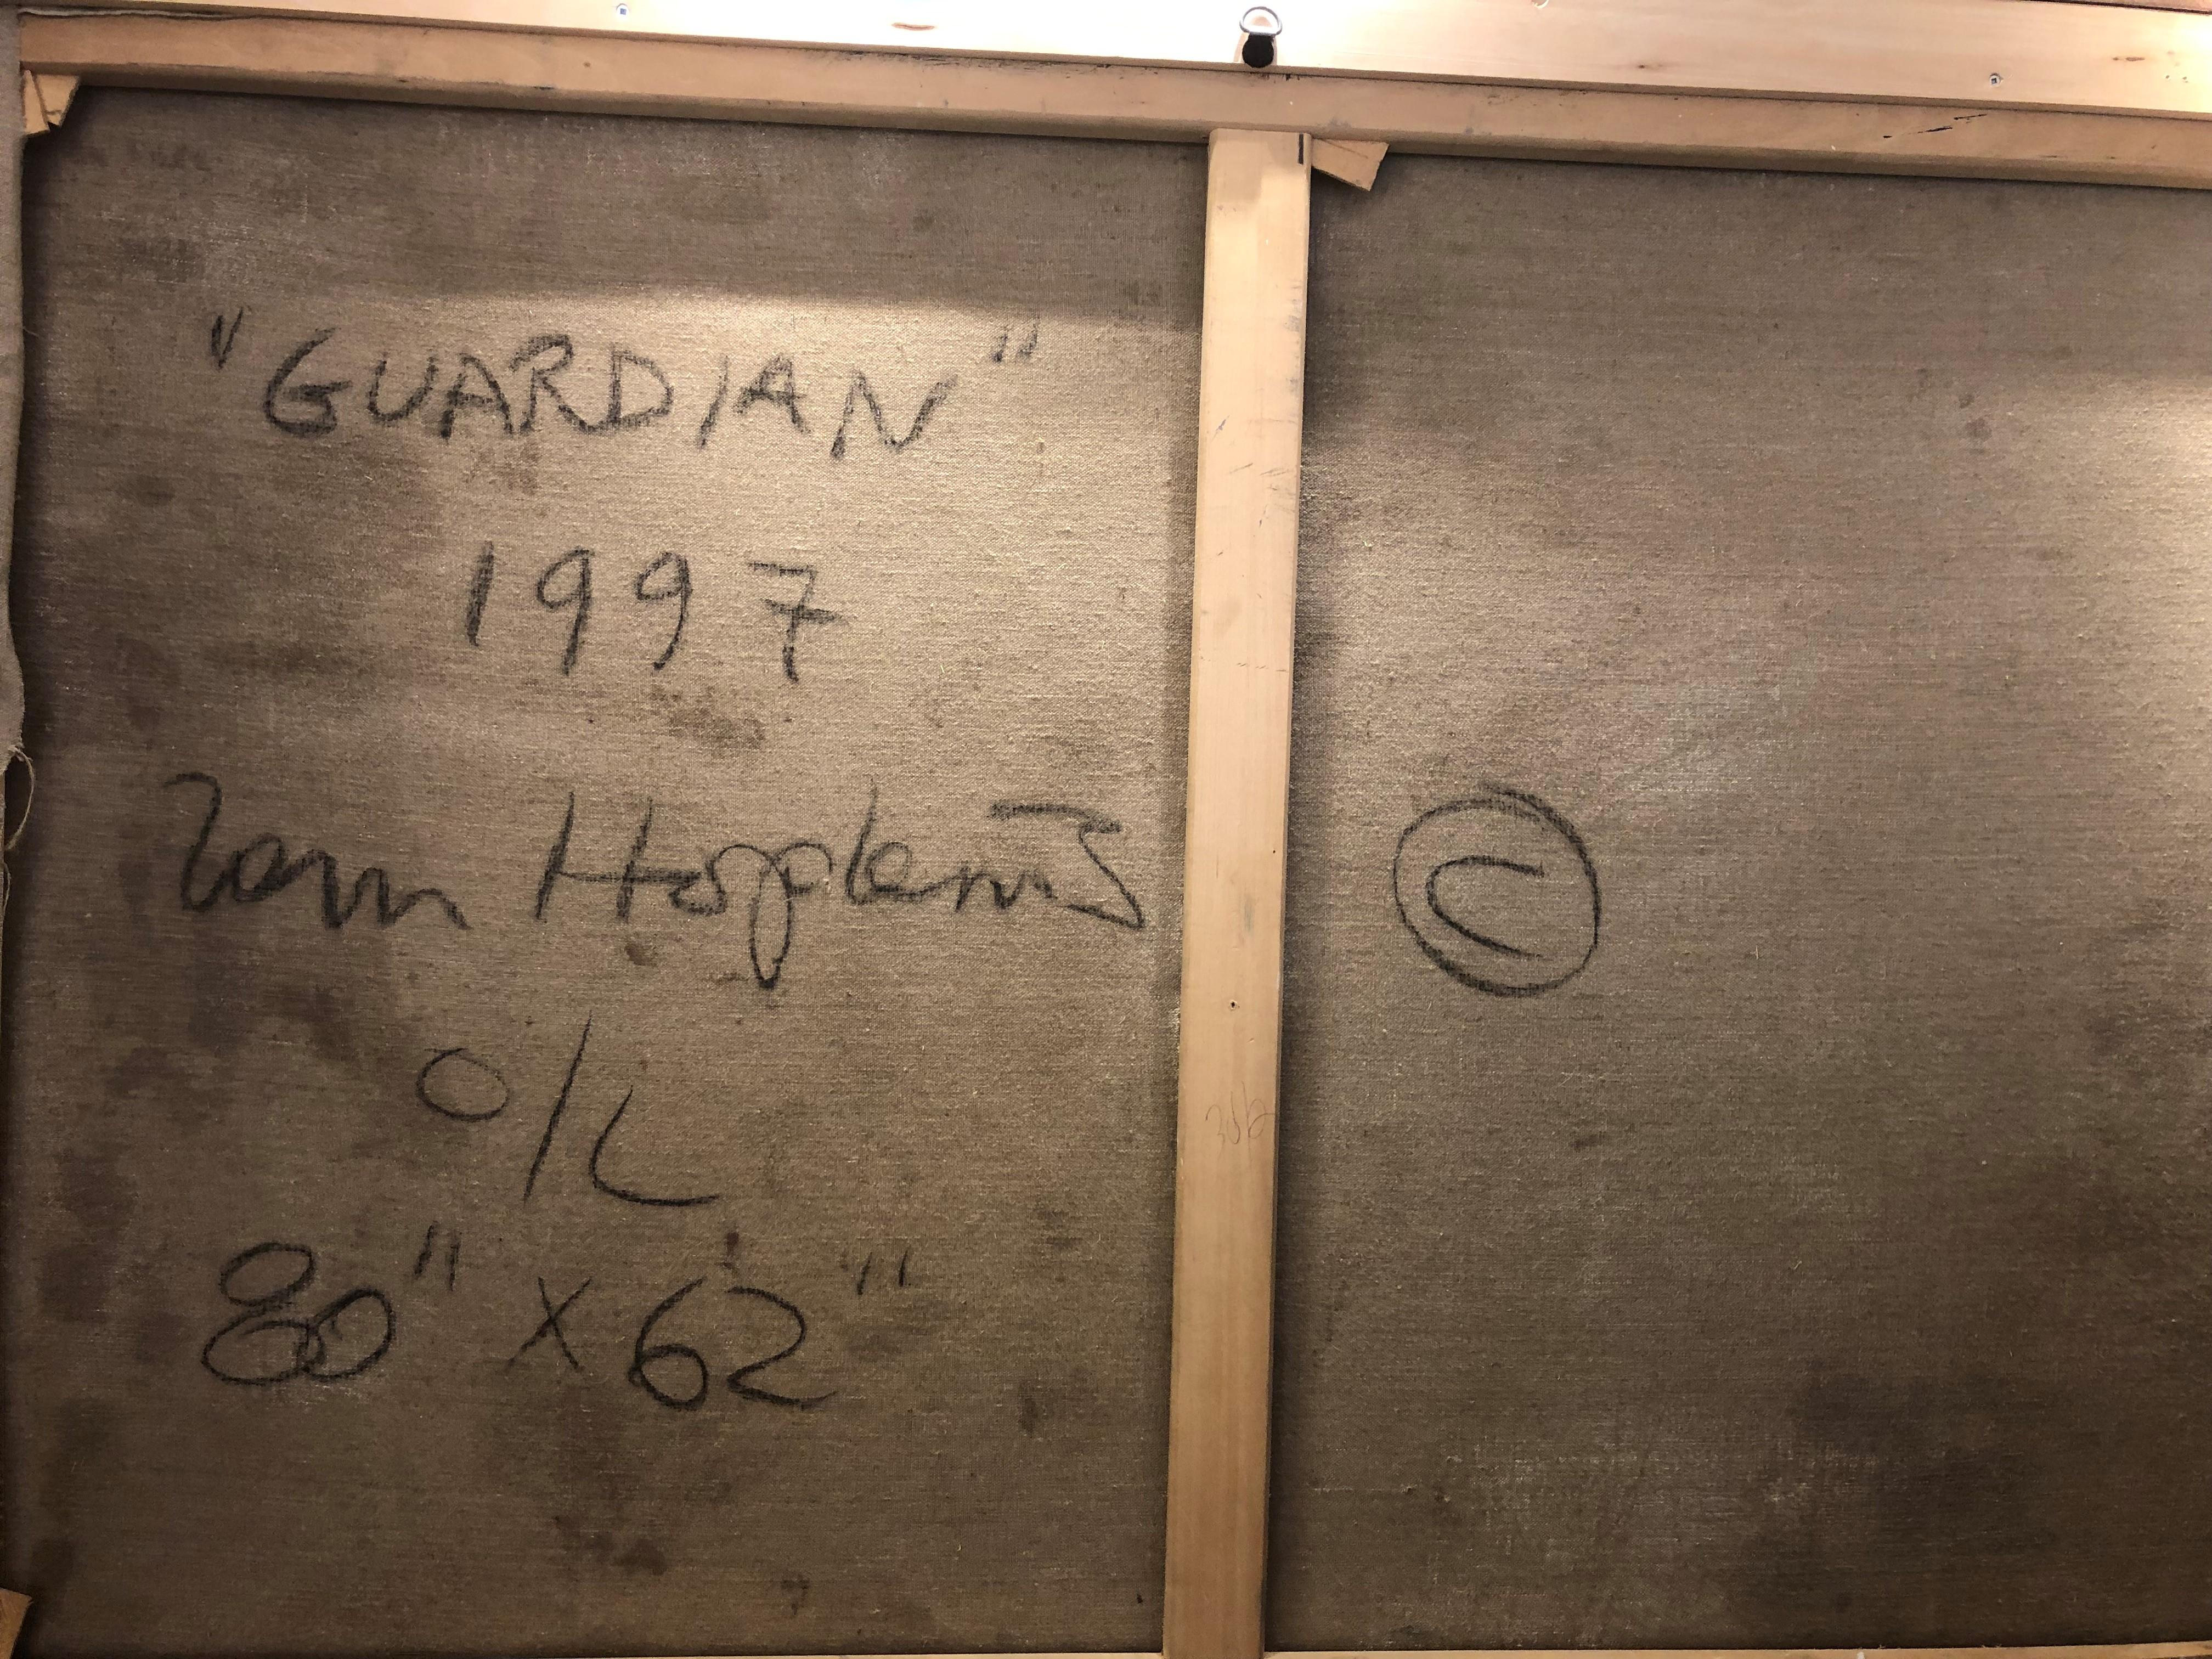 "GUARDIAN"
1997
Tom Hopkins ©
O/L
80" X 62"